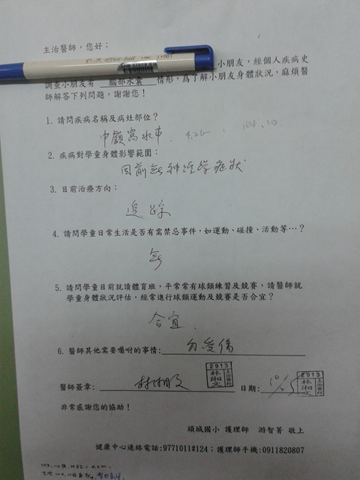 主治醫師，您好：
小朋友，經個人疾病史
調查小朋友有 腦部水囊 情形，為了解小朋友身體狀況，麻煩醫
師解答下列問題，謝謝您！
1. 請問疾病名稱及病灶部位？
中顱窩水
2. 疾病對學童身體影響範圍：
目前無神經學症狀
3. 目前治療方向：
追蹤
4. 請問學童日常生活是否有需禁忌事件，如運動、碰撞、活動等…？
無
5. 請問學童目前就讀體育班，平常常有球類練習及競賽，請醫師就
學童身體狀況評估，經常進行球類運動及競賽是否合宜？
合宜
6. 醫師其他需要囑咐的事情: 勿受傷
醫師簽章: 日期:
非常感謝您的協助！
頭城國小 護理師 游智菁 敬上
健康中心連絡電話:9771011#124；護理師手機:0911820807